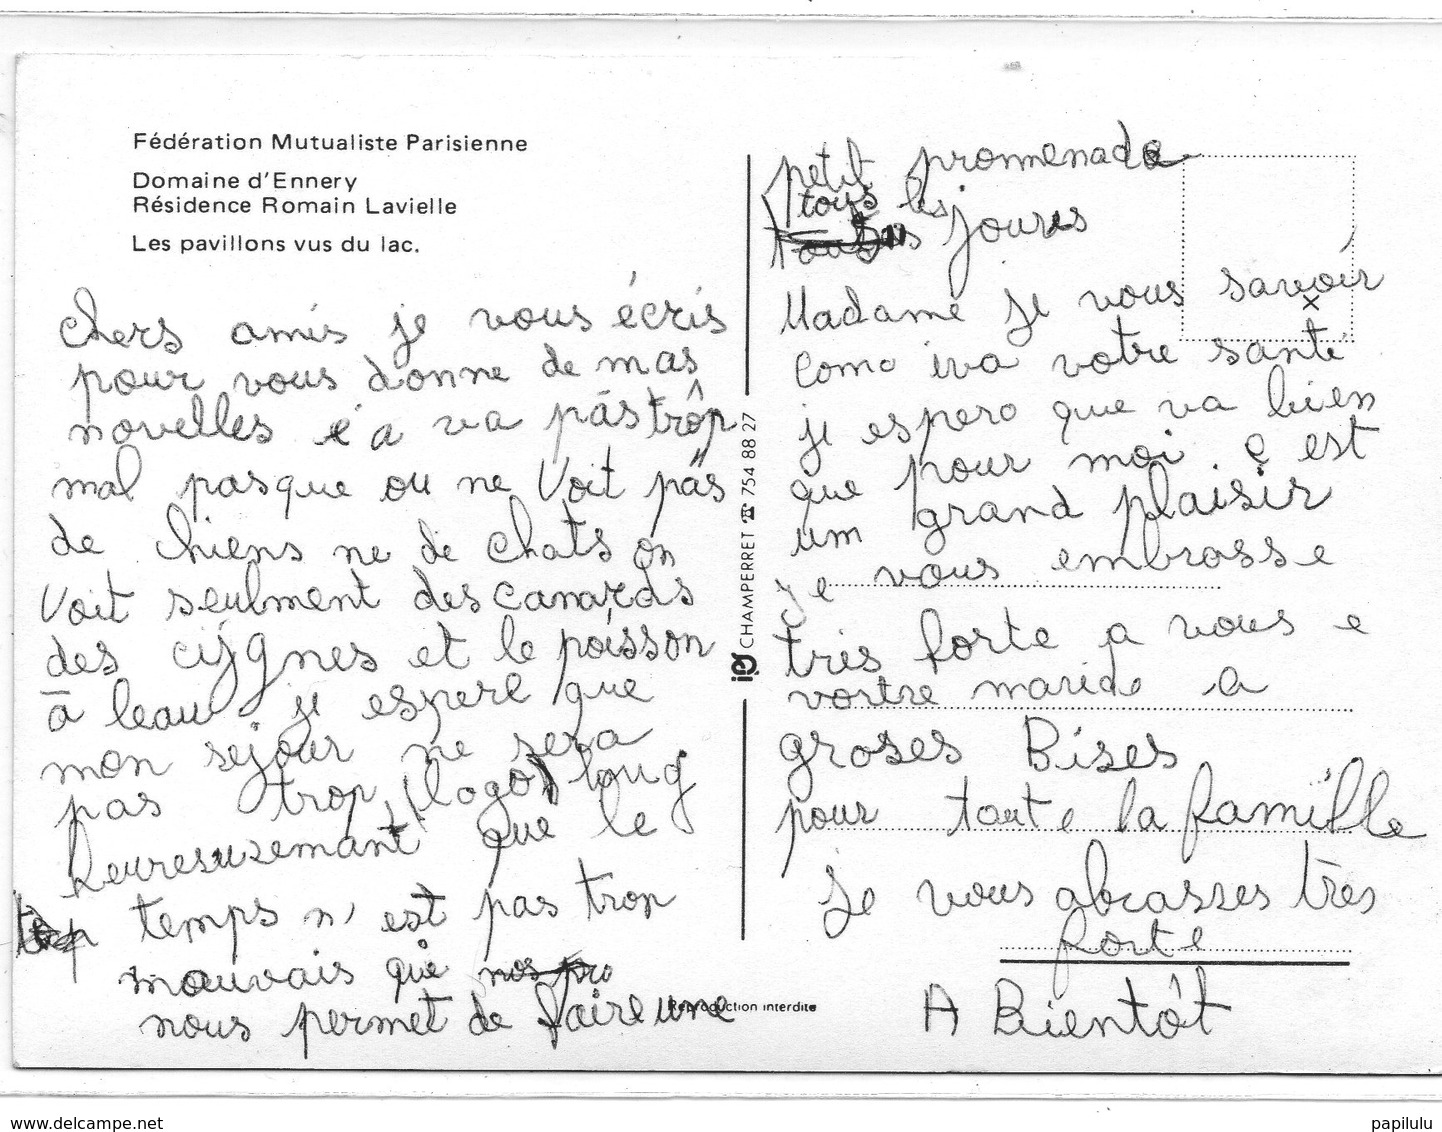 Fédération Mutualiste Parisienne
Domaine d'Ennery
Résidence Romain Lavielle
Les pavillons vus du lac.
chers amis je vous écris
pour vous donne de mas
novelles é a va pás trôp
mal pasque ou ne Voit pás
de chiens ne de chats on
Voit seulment des canards
des cijgnes et le poisson
à leau. je espere que
mon sejour ne sera
pas trop, (logo) loug
heuresuzemant que le
temps n'est pas trop
mauvais que
nous permet de faire une
Reproduction interdite
iog CHAMPERRET ☎ 754 88 27
petit promenade
tous les
jours
Madame je vous savoir
como iva votre santé
je espero que va bien
que pour moi ç est
um grand plaisir
je vous embrasse
très forte a vous e
vortre marido a
groses Bises
pour toute la famille
je vous abrasses très
forte
A Bientôt
www.delcampe.net
papilulu